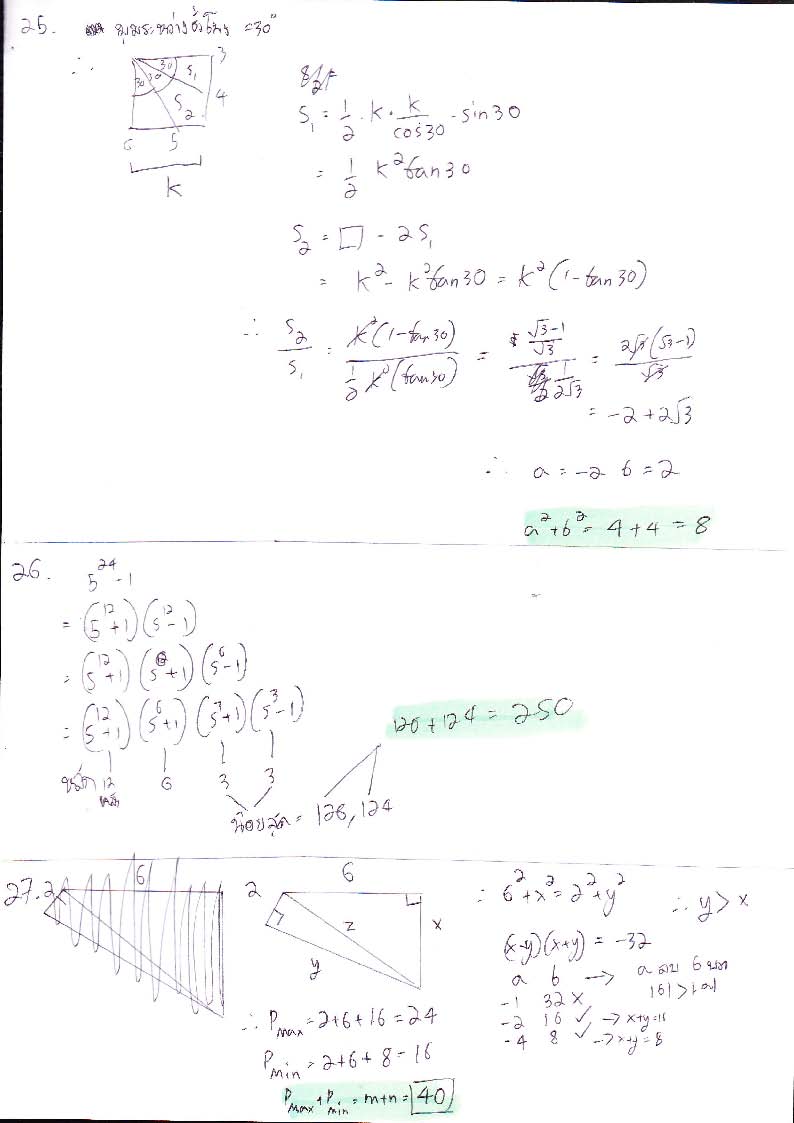 25. มุมระหว่างชั่วโมง = 30°
∴
30 30 30 S₁ S₂
3
4
5
6
k
S₁ = 1/2 · k · k/cos30 · sin30
= 1/2 k² tan30
S₂ = □ - 2S₁
= k² - k² tan30 = k² (1 - tan30)
∴ S₂/S₁ = k²(1 - tan30) / 1/2 k²(tan30) = (√3-1)/√3 / 1/(2√3) = 2√3(√3-1)/√3
= -2 + 2√3
∴ a = -2 b = 2
a² + b² = 4 + 4 = 8
26. 5²⁴ - 1
= (5¹² + 1)(5¹² - 1)
= (5¹² + 1)(5⁶ + 1)(5⁶ - 1)
= (5¹² + 1)(5⁶ + 1)(5³ + 1)(5³ - 1)
12 6 3 3
หลัก
น้อยสุด = 126, 124
126 + 124 = 250
27. 2 6
2 6 x y z
∴ 6² + x² = 2² + y² ∴ y > x
(x-y)(x+y) = -32
a b → a ลบ b บวก
|b| > |a|
-1 32 ×
-2 16 ✓ → x+y=16
-4 8 ✓ → x+y=8
∴ Pmax = 2+6+16 = 24
Pmin = 2+6+8 = 16
Pmax + Pmin = m+n = 40